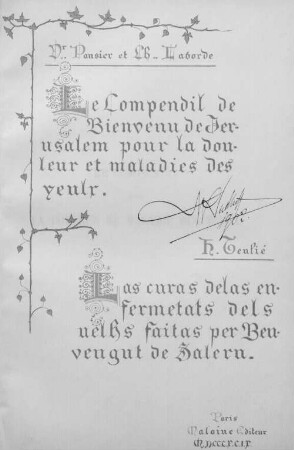 Dr. Pansier et Ch. Laborde
Le Compendil de
Bienvenu de Jer-
usalem pour la dou-
leur et maladies des
yeulx.
H. Teulié
Las curas delas en-
fermetats dels
uelhs faitas per Ben-
vengut de Salern.
Paris
Maloine Editeur
MDCCCXCIX